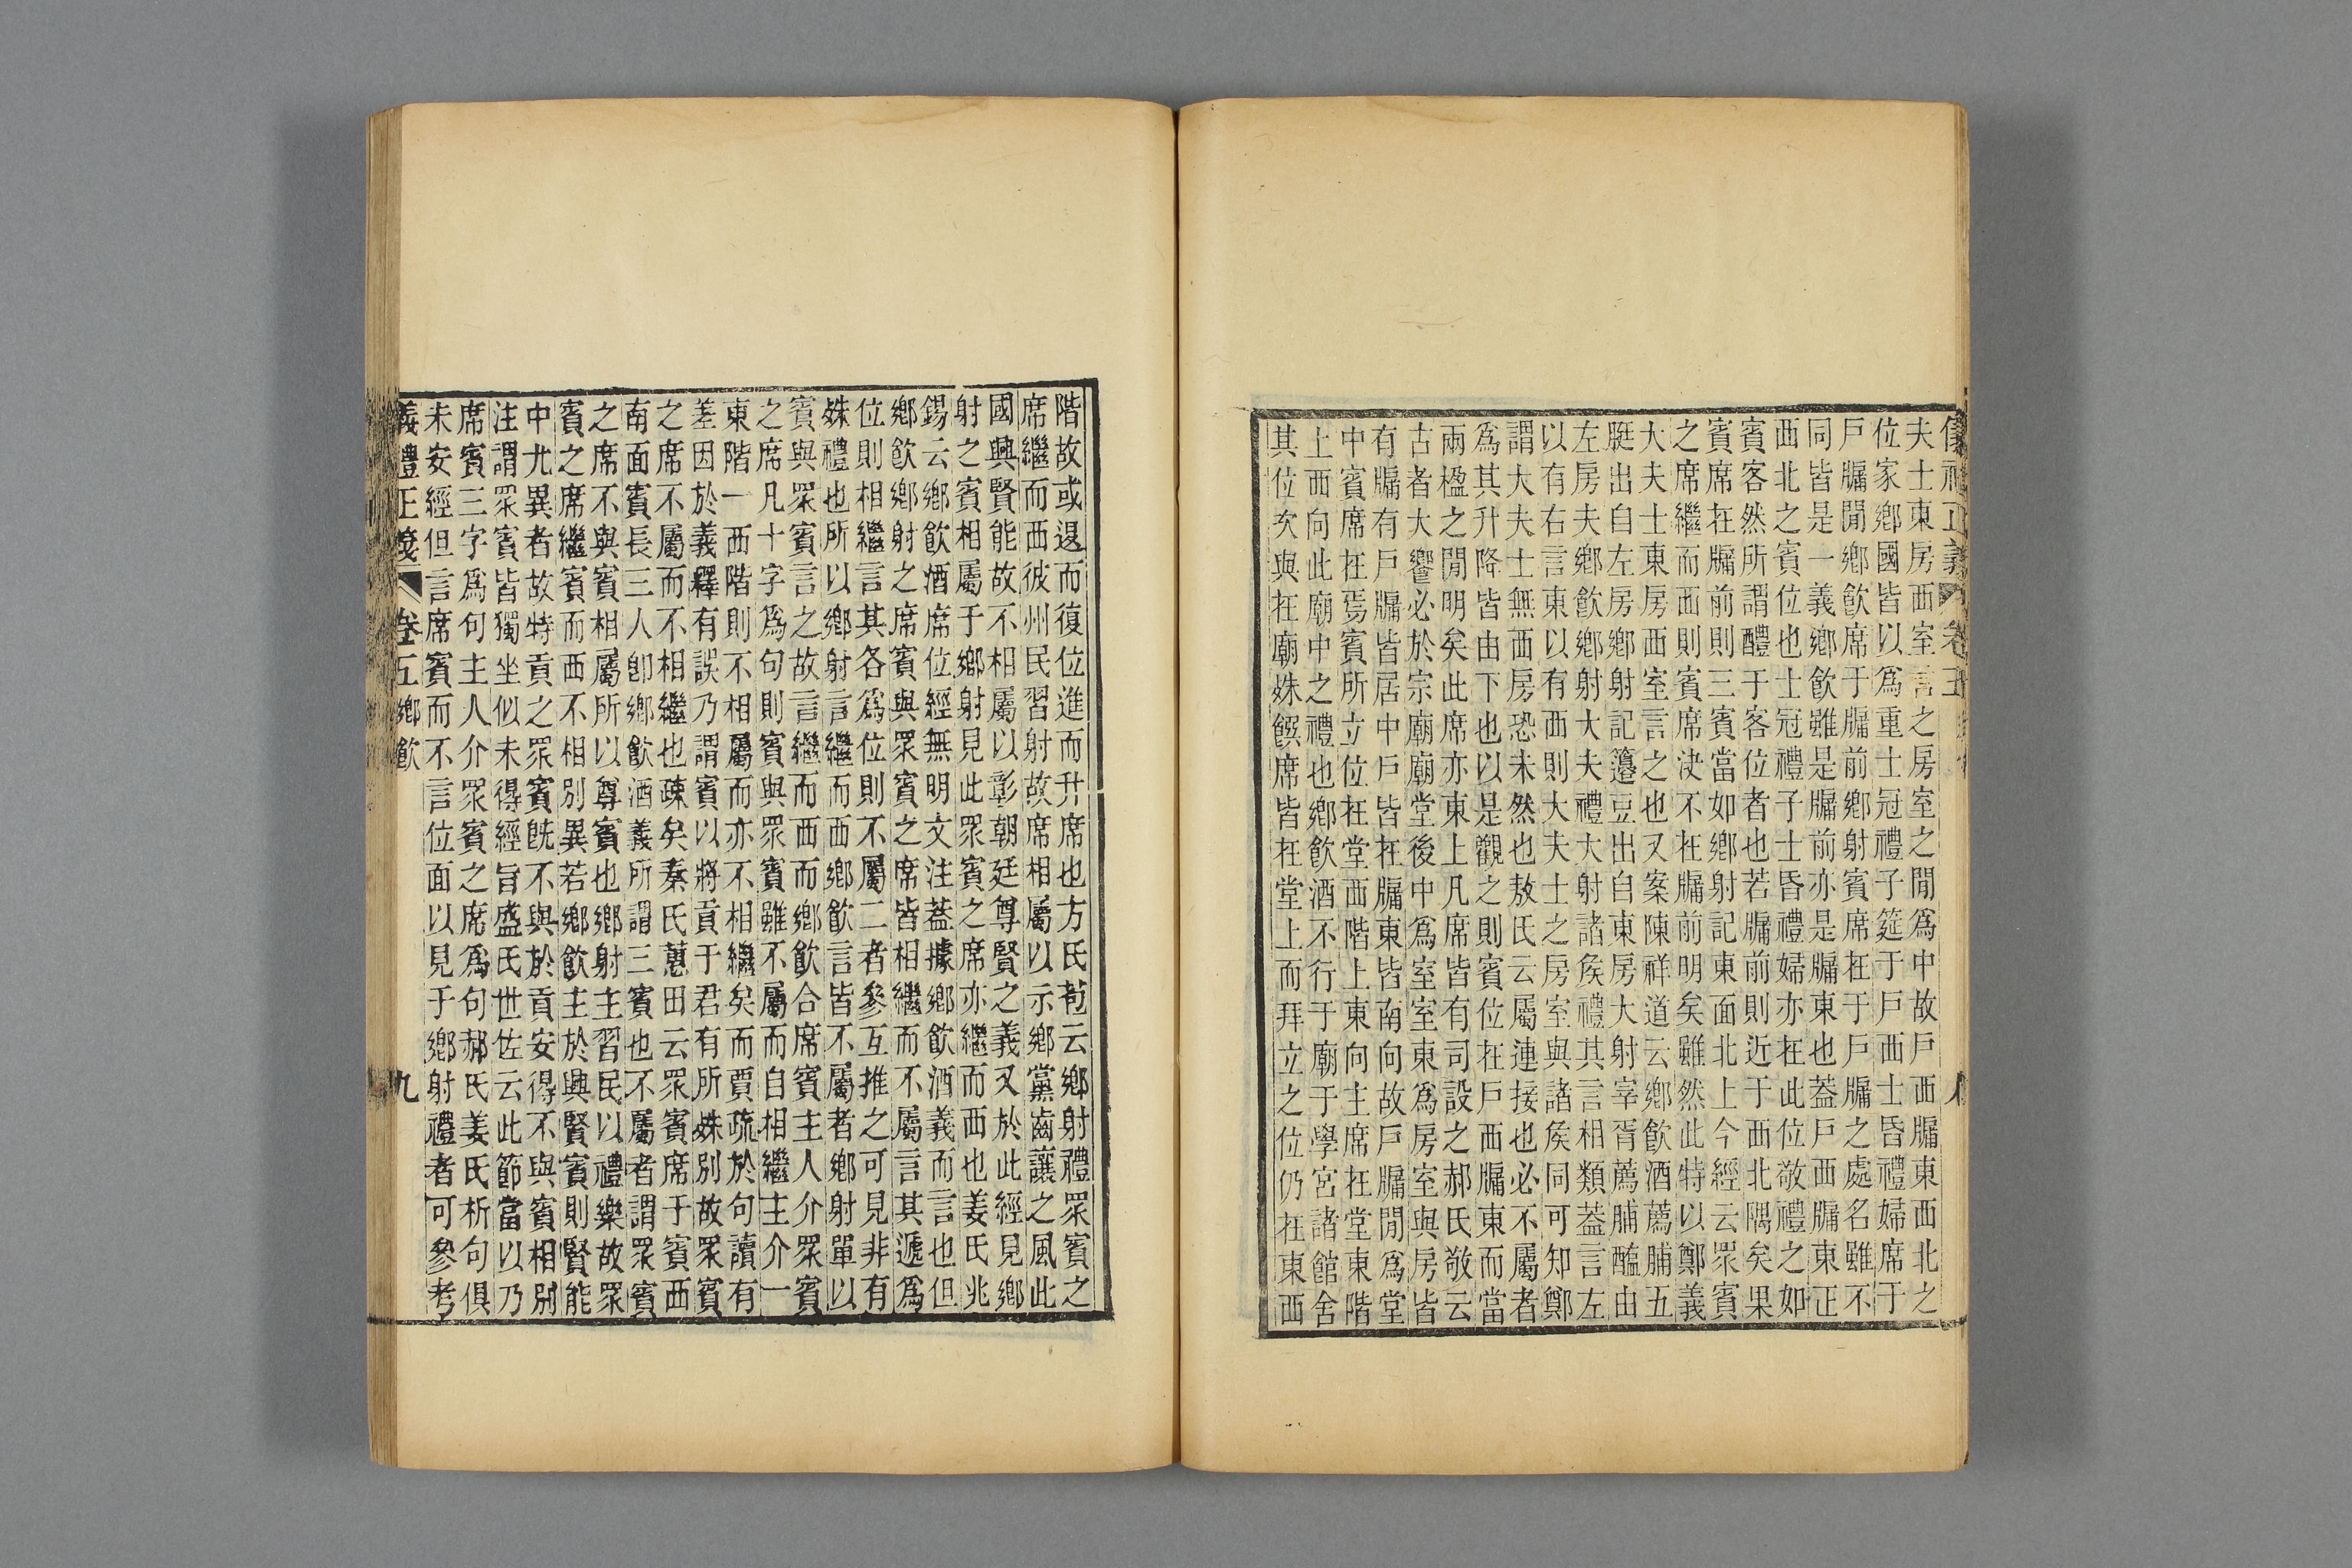 夫士東房西室言之房室之閒爲中故戶西牖東西北之
位家鄉國皆以爲重士冠禮子筵于戶西士昏禮婦席于
戶牖閒鄉飮席于牖前鄉射賓席在于戶牖之處名雖不
同皆是一義鄉飮雖是牖前亦是牖東也葢戶西牖東正
西北之賓位也士冠禮子士昏禮婦亦在此位敬禮之如
賓客然所謂醴于客位者也若牖前則近于西北隅矣果
賓席在牖前則三賓當如鄉射記東面北上今經云眾賓
之席繼而西則賓席決不在牖前明矣雖然此特以鄭義
大夫士東房西室言之也又案陳祥道云鄉飮酒薦脯五
脡出自左房鄉射記籩豆出自東房大射宰胥薦脯醢由
左房夫鄉飮鄉射大夫禮大射諸矦禮其言相類葢言左
以有右言東以有西則大夫士之房室與諸矦同可知鄭
謂大夫士無西房恐未然也敖氏云屬連接也必不屬者
爲其升降皆由下也以是觀之則賓位在戶西牖東而當
兩楹之閒明矣此席亦東上凡席皆有司設之郝氏敬云
古者大饗必於宗廟廟堂後中爲室室東爲房室與房皆
有牖有戶牖皆居中戶皆在牖東皆南向故戶牖閒爲堂
中賓席在焉賓所立位在堂西階上東向主席在堂東階
上西向此廟中之禮也鄉飮酒不行于廟于學宮諸館舍
其位次與在廟姝饌席皆在堂上而拜立之位仍在東西
階故或退而復位進而升席也方氏苞云鄉射禮眾賓之
席繼而西彼州民習射故席相屬以示鄉黨齒讓之風此
國興賢能故不相屬以彰朝廷尊賢之義又於此經見鄉
射之賓相屬于鄉射見此眾賓之席亦繼而西也姜氏兆
錫云鄉飮酒席位經無明文注葢據鄉飮酒義而言也但
鄉飮鄉射之席賓與眾賓之席皆相繼而不屬言其遞爲
位則相繼言其各爲位則不屬二者參互推之可見非有
姝禮也所以鄉射言繼而西鄉飮言皆不屬者鄉射單以
賓與眾賓言之故言繼而西而鄉飮合席賓主人介眾賓
之席凡十字爲句則賓與眾賓雖不屬而自相繼主介一
東階一西階則不相屬而亦不相繼矣而賈疏於句讀有
差因於義釋有誤乃謂賓以將貢于君有所姝別故眾賓
之席不屬而不相繼也疎矣秦氏蕙田云眾賓席于賓西
南面賓長三人卽鄉飮酒義所謂三賓也不屬者謂眾賓
之席不與賓相屬所以尊賓也鄉射主習民以禮樂故眾
賓之席繼賓而西不相別異若鄉飮主於興賢賓則賢能
中尤異者故特貢之眾賓旣不與於貢安得不與賓相別
注謂眾賓皆獨坐似未得經旨盛氏世佐云此節當以乃
席賓三字爲句主人介眾賓之席爲句郝氏姜氏析句俱
未安經但言席賓而不言位面以見于鄉射禮者可參考
義禮正箋 卷五鄉飮 九